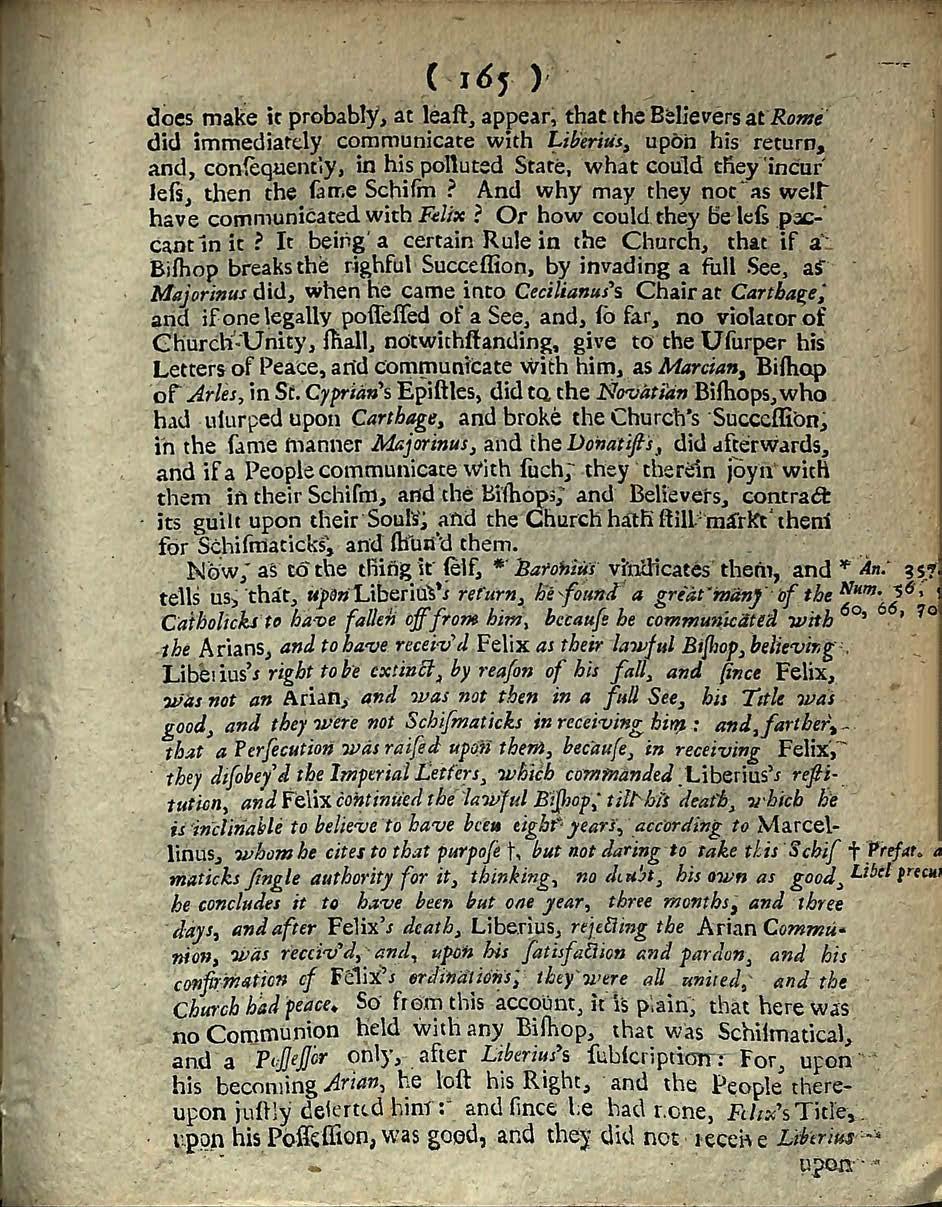 ( 165 )
does make it probably, at leaſt, appear, that the Believers at Rome
did immediately communicate with Liberius, upon his return,
and, conſequently, in his polluted State, what could they incur
leſs, then the ſame Schiſm ? And why may they not as well
have communicated with Felix ? Or how could they be leſs pec-
cant in it ? It being a certain Rule in the Church, that if a
Biſhop breaks the righful Succeſſion, by invading a full See, as
Majorinus did, when he came into Cecilianus's Chair at Carthage,
and if one legally poſſeſſed of a See, and, ſo far, no violator of
Church-Unity, ſhall, notwithſtanding, give to the Uſurper his
Letters of Peace, and communicate with him, as Marcian, Biſhop
of Arles, in St. Cyprian's Epiſtles, did to the Novatian Biſhops, who
had uſurped upon Carthage, and broke the Church's Succeſſion,
in the ſame manner Majorinus, and the Donatiſts, did afterwards,
and if a People communicate with ſuch, they therein joyn with
them in their Schiſm, and the Biſhops, and Believers, contract
its guilt upon their Souls, and the Church hath ſtill markt them
for Schiſmaticks, and ſhun'd them.
Now, as to the thing it ſelf, * Baronius vindicates them, and * An. 357.
tells us, that, upon Liberius's return, he found a great many of the Num. 56,
Catholicks to have fallen off from him, becauſe he communicated with 60, 66, 70
the Arians, and to have receiv'd Felix as their lawful Biſhop, believing
Liberius's right to be extinct, by reaſon of his fall, and ſince Felix,
was not an Arian, and was not then in a full See, his Title was
good, and they were not Schiſmaticks in receiving him : and, farther,
that a Perſecution was raiſed upon them, becauſe, in receiving Felix,
they diſobey'd the Imperial Letters, which commanded Liberius's reſti-
tution, and Felix continued the lawful Biſhop, till his death, which he
is inclinable to believe to have been eight years, according to Marcel-
linus, whom he cites to that purpoſe †, but not daring to take this Schiſ † Prefat. a
maticks ſingle authority for it, thinking, no doubt, his own as good, Libel precu
he concludes it to have been but one year, three months, and three
days, and after Felix's death, Liberius, rejecting the Arian Commu-
nion, was receiv'd, and, upon his ſatisfaction and pardon, and his
confirmation of Felix's ordinations, they were all united, and the
Church had peace. So from this account, it is plain, that here was
no Communion held with any Biſhop, that was Schiſmatical,
and a Poſſeſſor only, after Liberius's ſubſcription : For, upon
his becoming Arian, he loſt his Right, and the People there-
upon juſtly deſerted him : and ſince he had none, Felix's Title,
upon his Poſſeſſion, was good, and they did not receive Liberius
upon